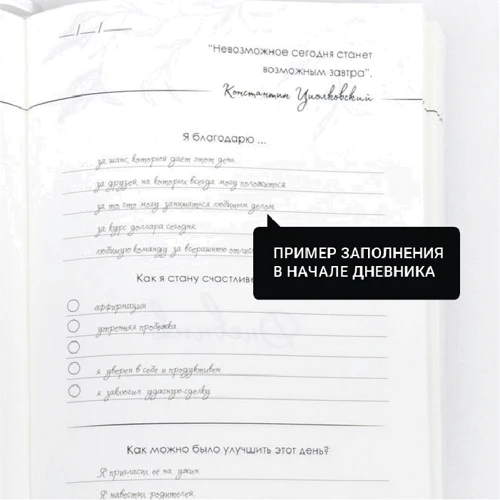 __/__/__
"Невозможное сегодня станет
возможным завтра".
Константин Циолковский
Я благодарю ...
за шанс, который даёт этот день
за друзей, на которых всегда могу положиться
за то, что могу заниматься любимым делом
за курс доллара сегодня
любимую команду за вчерашнюю
ПРИМЕР ЗАПОЛНЕНИЯ
В НАЧАЛЕ ДНЕВНИКА
Как я стану счастливе
аффирмации
утренняя пробежка
я уверен в себе и продуктивен
я заключил удачную сделку
Как можно было улучшить этот день?
Я пригласил её на ужин
Я навестил родителей